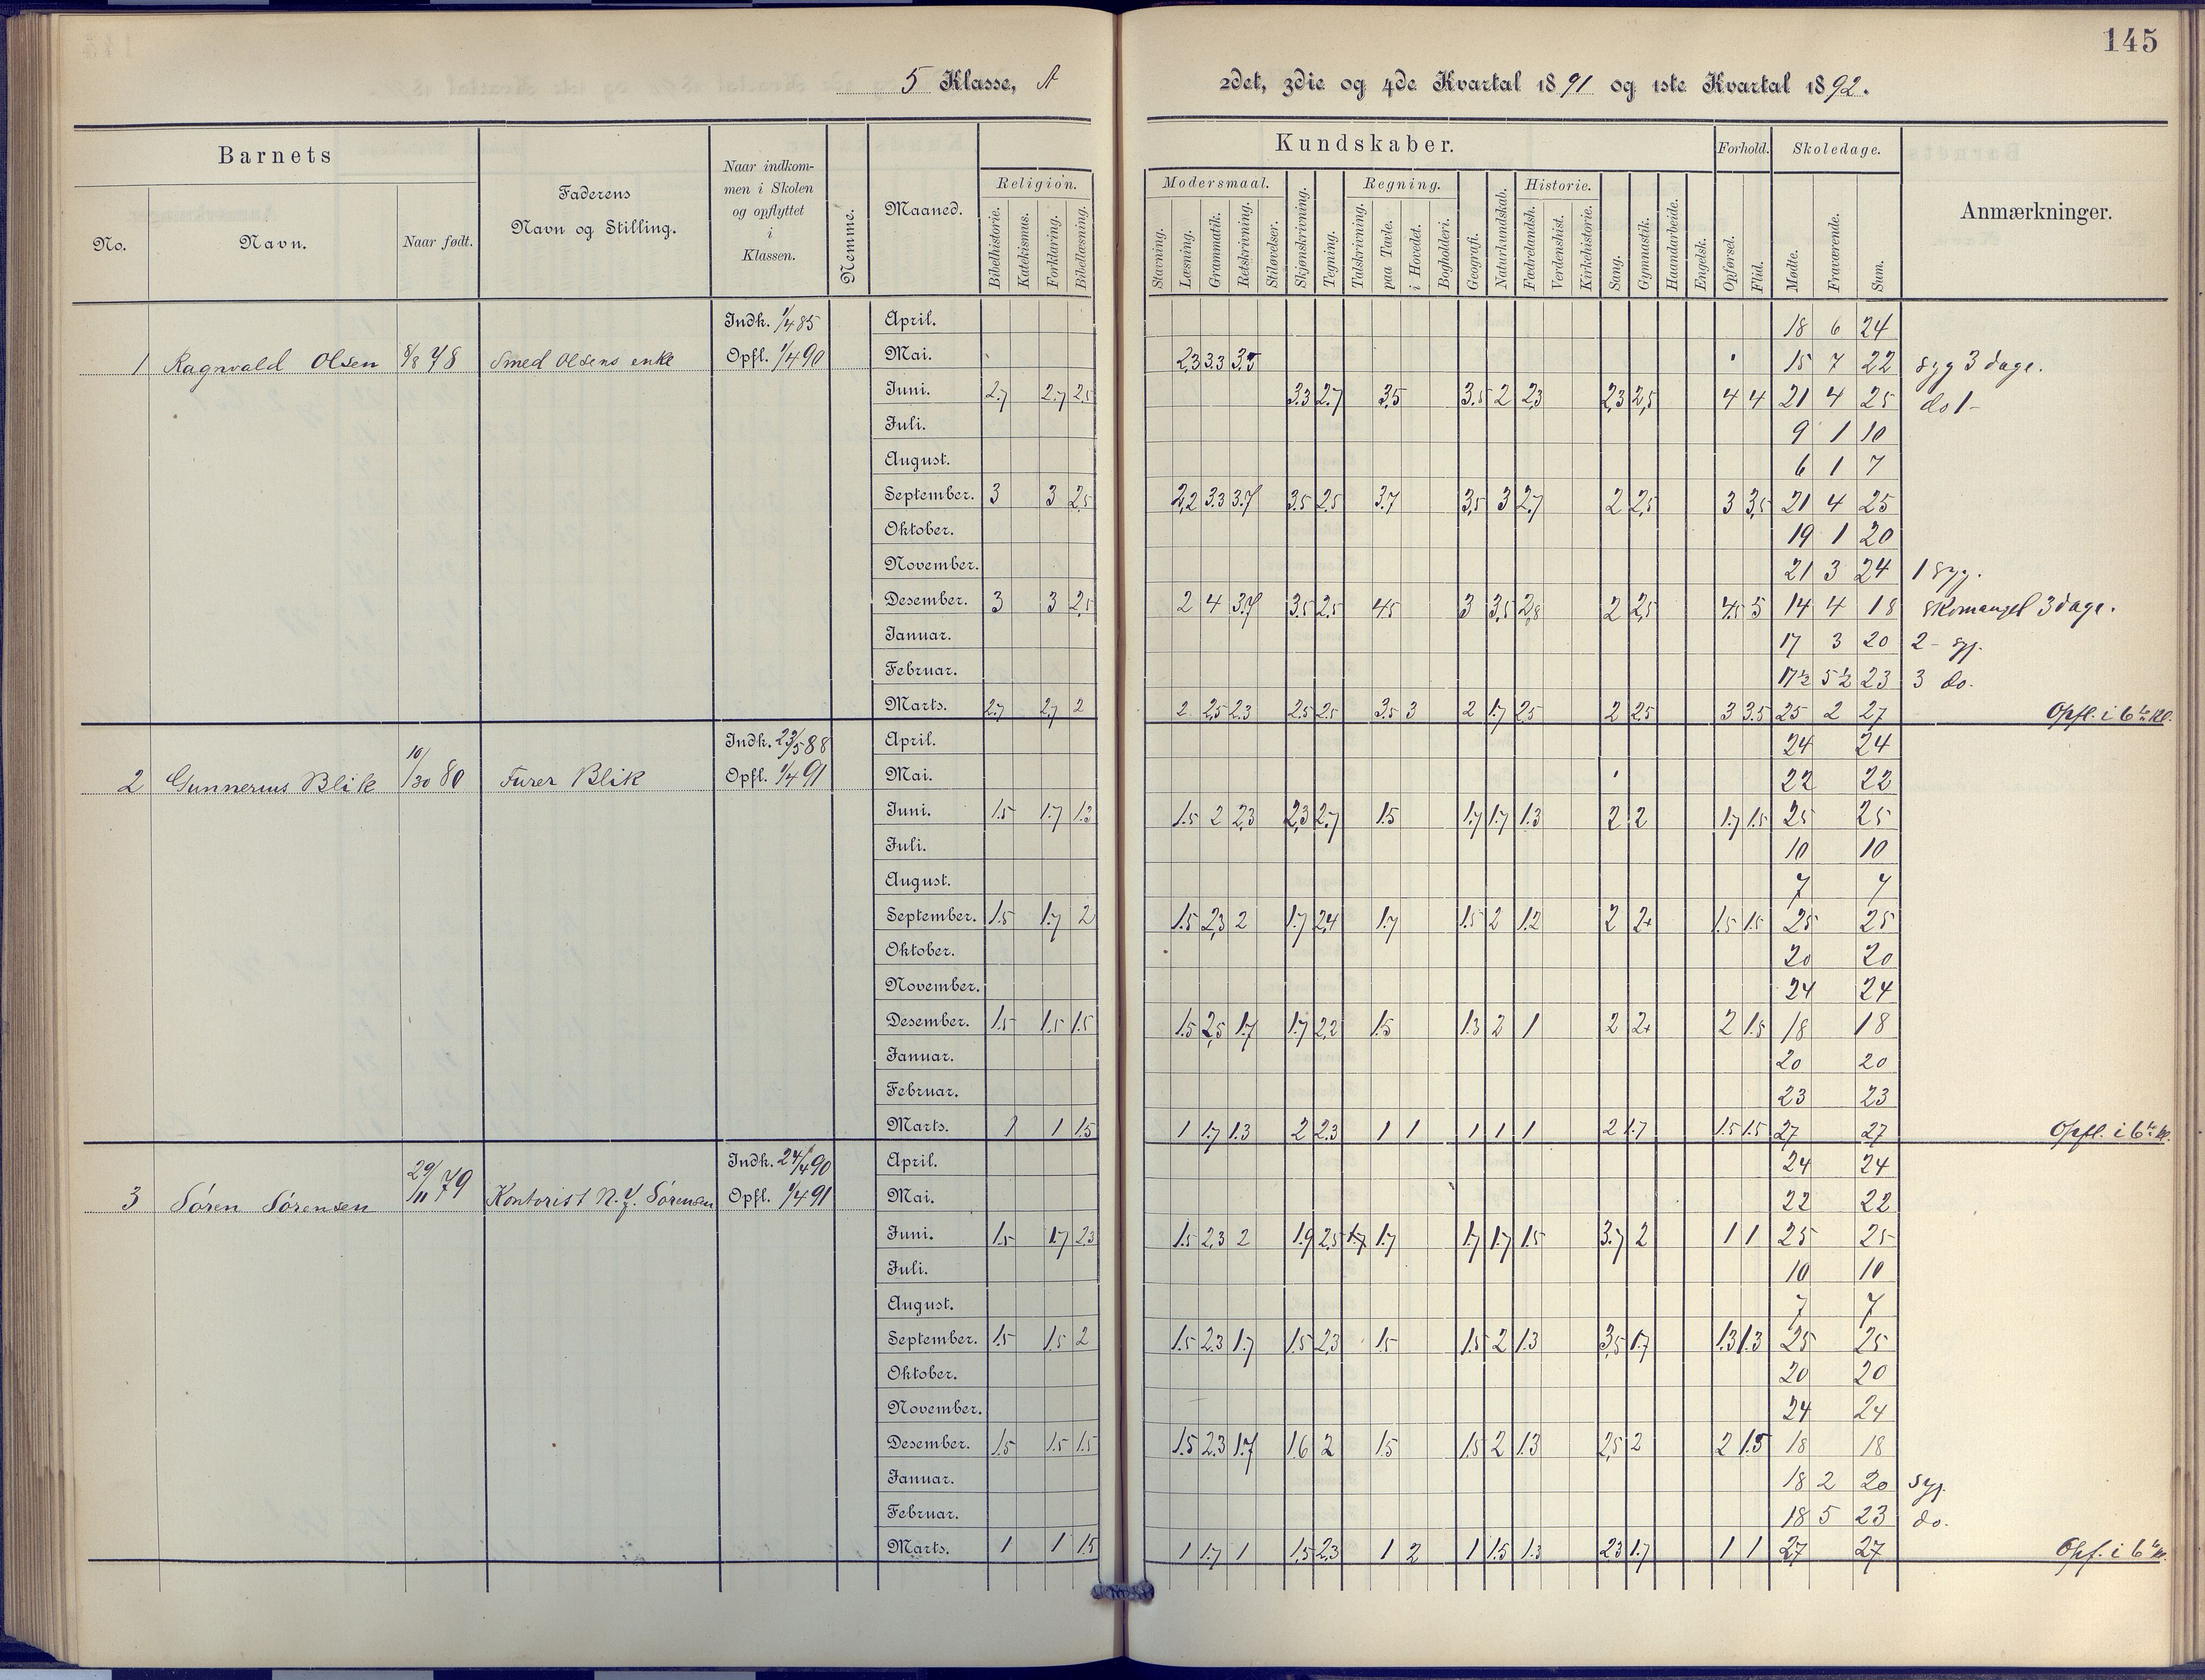 145
5 Klasse, A 2det, 3die og 4de Kvartal 1891 og 1ste Kvartal 1892.
Barnets
No.
Navn.
Naar født.
Faderens
Navn og Stilling.
Naar indkom-
men i Skolen
og opflyttet
i
Klassen.
Nemme.
Maaned.
Kundskaber.
Religion.
Bibelhistorie.
Katekismus.
Forklaring.
Bibellæsning.
Modersmaal.
Stavning.
Læsning.
Grammatik.
Retskrivning.
Stiløvelser.
Skjønskrivning.
Tegning.
Regning.
Talskrivning.
paa Tavle.
i Hovedet.
Bogholderi.
Geografi.
Naturkundskab.
Historie.
Fædrelandsh.
Verdenshist.
Kirkehistorie.
Sang.
Gymnastik.
Haandarbeide.
Engelsk.
Forhold.
Opførsel.
Flid.
Skoledage.
Mødte.
Fraværende.
Sum.
Anmærkninger.
1 Ragnvald Olsen 8/8 78 Smed Olsens enke
Indk. 1/4 85
Opfl. 1/4 90
April. 18 6 24
Mai. 2.3 3.3 3.5 15 7 22 syg 3 dage.
Juni. 2.7 2.7 2.5 3.3 2.7 3.5 3.5 2 2.3 2.3 2.5 4 4 21 4 25 do 1 -
Juli. 9 1 10
August. 6 1 7
September. 3 3 2.5 2.2 3.3 3.7 3.5 2.5 3.7 3.5 3 2.7 2 2.5 3 3.5 21 4 25
Oktober. 19 1 20
November. 21 3 24 1 syg.
Desember. 3 3 2.5 2 4 3.7 3.5 2.5 4.5 3 3.5 2.8 2 2.5 4.5 5 14 4 18 Skomangel 3 dage.
Januar. 17 3 20 2 - syg.
Februar. 17½ 5½ 23 3 do.
Marts. 2.7 2.7 2 2 2.5 2.3 2.5 2.5 3.5 3 2 1.7 2.5 2 2.5 3 3.5 25 2 27 Opfl. i 6te Kl.
2 Gunnerius Blik 10/30 80 Furer Blik
Indk. 23/5 88
Opfl. 1/4 91
April. 24 24
Mai. 22 22
Juni. 1.5 1.7 1.3 1.5 2 2.3 2.3 2.7 1.5 1.7 1.7 1.3 2 2 1.7 1.5 25 25
Juli. 10 10
August. 7 7
September. 1.5 1.7 2 1.5 2.3 2 1.7 2.4 1.7 1.5 2 1.2 2 2+ 1.5 1.5 25 25
Oktober. 20 20
November. 24 24
Desember. 1.5 1.5 1.5 1.5 2.5 1.7 1.7 2.2 1.5 1.3 2 1 2 2+ 2 1.5 18 18
Januar. 20 20
Februar. 23 23
Marts. 1 1 1.5 1 1.7 1.3 2 2.3 1 1 1 1 1 2 1.7 1.5 1.5 27 27 Opfl. i 6te Kl.
3 Søren Sørensen 29/11 79 Kontorist N. J. Sørensen
Indk. 24/4 90
Opfl. 1/4 91
April. 24 24
Mai. 22 22
Juni. 1.5 1.7 2.3 1.5 2.3 2 1.9 2.5 1.7 1.7 1.7 1.7 1.5 3.7 2 1 1 25 25
Juli. 10 10
August. 7 7
September. 1.5 1.5 2 1.5 2.3 1.7 1.5 2.3 1.5 1.5 2 1.3 3.5 1.7 1.3 1.3 25 25
Oktober. 20 20
November. 24 24
Desember. 1.5 1.5 1.5 1.5 2.3 1.7 1.6 2 1.5 1.5 2 1.3 2.5 2 2 1.5 18 18
Januar. 18 2 20 syg.
Februar. 18 5 23 do.
Marts. 1 1 1.5 1 1.7 1 1.5 2.3 1 2 1 1.5 1.3 2.3 1.7 1 1 27 27 Opf. i 6te Kl.